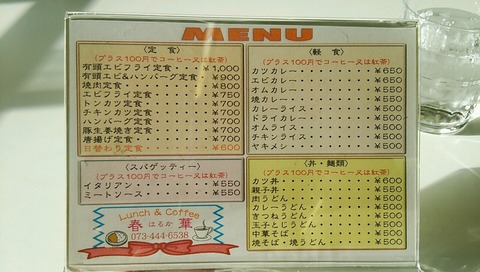 MENU
〈定 食〉
(プラス100円でコーヒー又は紅茶)
有頭エビフライ定食・・¥1,000
有頭エビ&ハンバーグ定食・・¥900
焼肉定食・・・・・・¥800
エビフライ定食・・・・¥750
トンカツ定食・・・・・¥700
チキンカツ定食・・・・¥700
ハンバーグ定食・・・・¥700
豚生姜焼き定食・・・・¥700
唐揚げ定食・・・・・・¥700
日替わり定食・・・・・¥600
〈スパゲッティー〉
(プラス100円でコーヒー又は紅茶)
イタリアン・・・・・・¥550
ミートソース・・・・・¥550
Lunch & Coffee
春 はるか 華
073-444-6538
〈軽 食〉
(プラス100円でコーヒー又は紅茶)
カツカレー・・・・・・¥650
エビカレー・・・・・・¥650
オムカレー・・・・・・
焼カレー・・・・・・・¥550
カレーライス・・・・・¥500
ドライカレー・・・・・¥500
オムライス・・・・・・¥500
チキンライス・・・・・¥500
ヤキメシ・・・・・・・¥500
〈丼・麺類〉
(プラス100円でコーヒー又は紅茶)
カツ丼・・・・・・・・¥600
親子丼・・・・・・・・
肉うどん・・・・・・・¥500
カレーうどん・・・・・¥500
きつねうどん・・・・・¥500
玉子とじうどん・・・・¥500
中華そば・・・・・・・¥500
焼そば・焼うどん・・・¥500